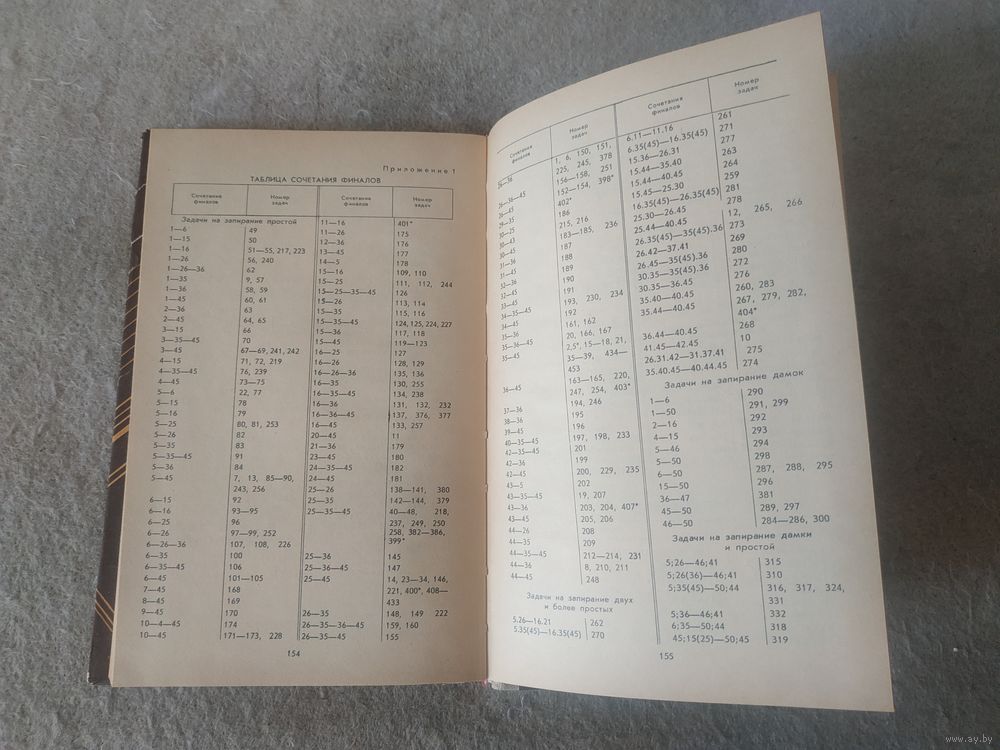 Приложение 1
ТАБЛИЦА СОЧЕТАНИЯ ФИНАЛОВ
Сочетания финалов Номер задач Сочетания финалов Номер задач
Задачи на запирание простой
1—6 49
1—15 50
1—16 51—55, 217, 223
1—26 56, 240
1—26—36 62
1—35 9, 57
1—36 58, 59
1—45 60, 61
2—36 63
2—45 64, 65
3—15 66
3—35—45 70
3—45 67—69, 241, 242
4—15 71, 72, 219
4—35—45 76, 239
4—45 73—75
5—6 22, 77
5—15 78
5—16 79
5—25 80, 81, 253
5—26 82
5—35 83
5—35—45 91
5—36 84
5—45 7, 13, 85—90,
243, 256
6—15 92
6—16 93—95
6—25 96
6—26 97—99, 252
6—26—36 107, 108, 226
6—35 100
6—35—45 106
6—45 101—105
7—45 168
8—45 169
9—45 170
10—4—45 174
10—45 171—173, 228
11—16 401*
11—26 175
12—36 176
13—45 177
14—5 178
15—16 109, 110
15—25 111, 112, 244
15—25—35—45 126
15—26 113, 114
15—35 115, 116
15—35—45 124, 125, 224, 227
15—36 117, 118
15—45 119—123
16—25 127
16—26 128, 129
16—26—36 135, 136
16—35 130, 255
16—35—45 134, 238
16—36 131, 132, 232
16—36—45 137, 376, 377
16—45 133, 257
20—45 11
21—36 179
23—45 180
24—35—45 182
24—45 181
25—26 138—141, 380
25—35 142—144, 379
25—35—45 40—48, 218,
237, 249, 250
258, 382—386,
399*
25—36 145
25—36—45 147
25—45 14, 23—34, 146,
221, 400*, 408—
433
26—35 148, 149 222
26—35—36—45 159, 160
26—35—45 155
154
Сочетания финалов Номер задач Сочетания финалов Номер задач
26—36 1, 6, 150, 151,
225, 245, 378
26—36—45 156—158, 251
26—45 152—154, 398*
402*
186
215, 216
183—185, 236
187
188
189
190
33—45 191
34—35—45 193, 230, 234
34—45 192
35—36 161, 162
35—36—45 20, 166, 167
35—45 2,5*, 15—18, 21,
35—39, 434—
453
36—45 163—165, 220,
247, 254, 403*
37—36 194, 246
38—36 195
39—45 196
40—35—45 197, 198, 233
42—35—45 201
42—36 199
42—45 200, 229, 235
43—5 202
43—35—45 19, 207
43—36 203, 204, 407*
43—45 205, 206
44—26 208
44—35 209
44—35—45 212—214, 231
44—36 8, 210, 211
44—45 248
Задачи на запирание двух
и более простых
5.26—16.21 262
5.35(45)—16.35(45) 270
6.11—11.16 261
6.35(45)—16.35(45) 271
15.36—26.31 277
15.44—35.40 263
15.44—40.45 264
15.45—25.30 259
16.35(45)—26.35(45) 281
25.30—26.45 278
25.44—40.45 12, 265, 266
26.35(45)—35(45).36 273
26.42—37.41 269
26.45—35(45).36 280
30.35—35(45).36 272
30.35—36.45 276
35.40—40.45 260, 283
35.40—44.45 267, 279, 282,
404*
36.44—40.45 268
41.45—42.45 10
26.31.42—31.37.41 275
35.40.45—40.44.45 274
Задачи на запирание дамок
1—6 290
1—50 291, 299
2—16 292
4—15 293
5—46 294
5—50 298
6—50 287, 288, 295
15—50 296
36—47 381
45—50 289, 297
46—50 284—286, 300
Задачи на запирание дамки
и простой
5;26—46;41 315
5;26(36)—46;41 310
5;35(45)—50;44 316, 317, 324,
331
5;36—46;41 332
6;35—50;44 318
45;15(25)—50;45 319
155
www.ay.by